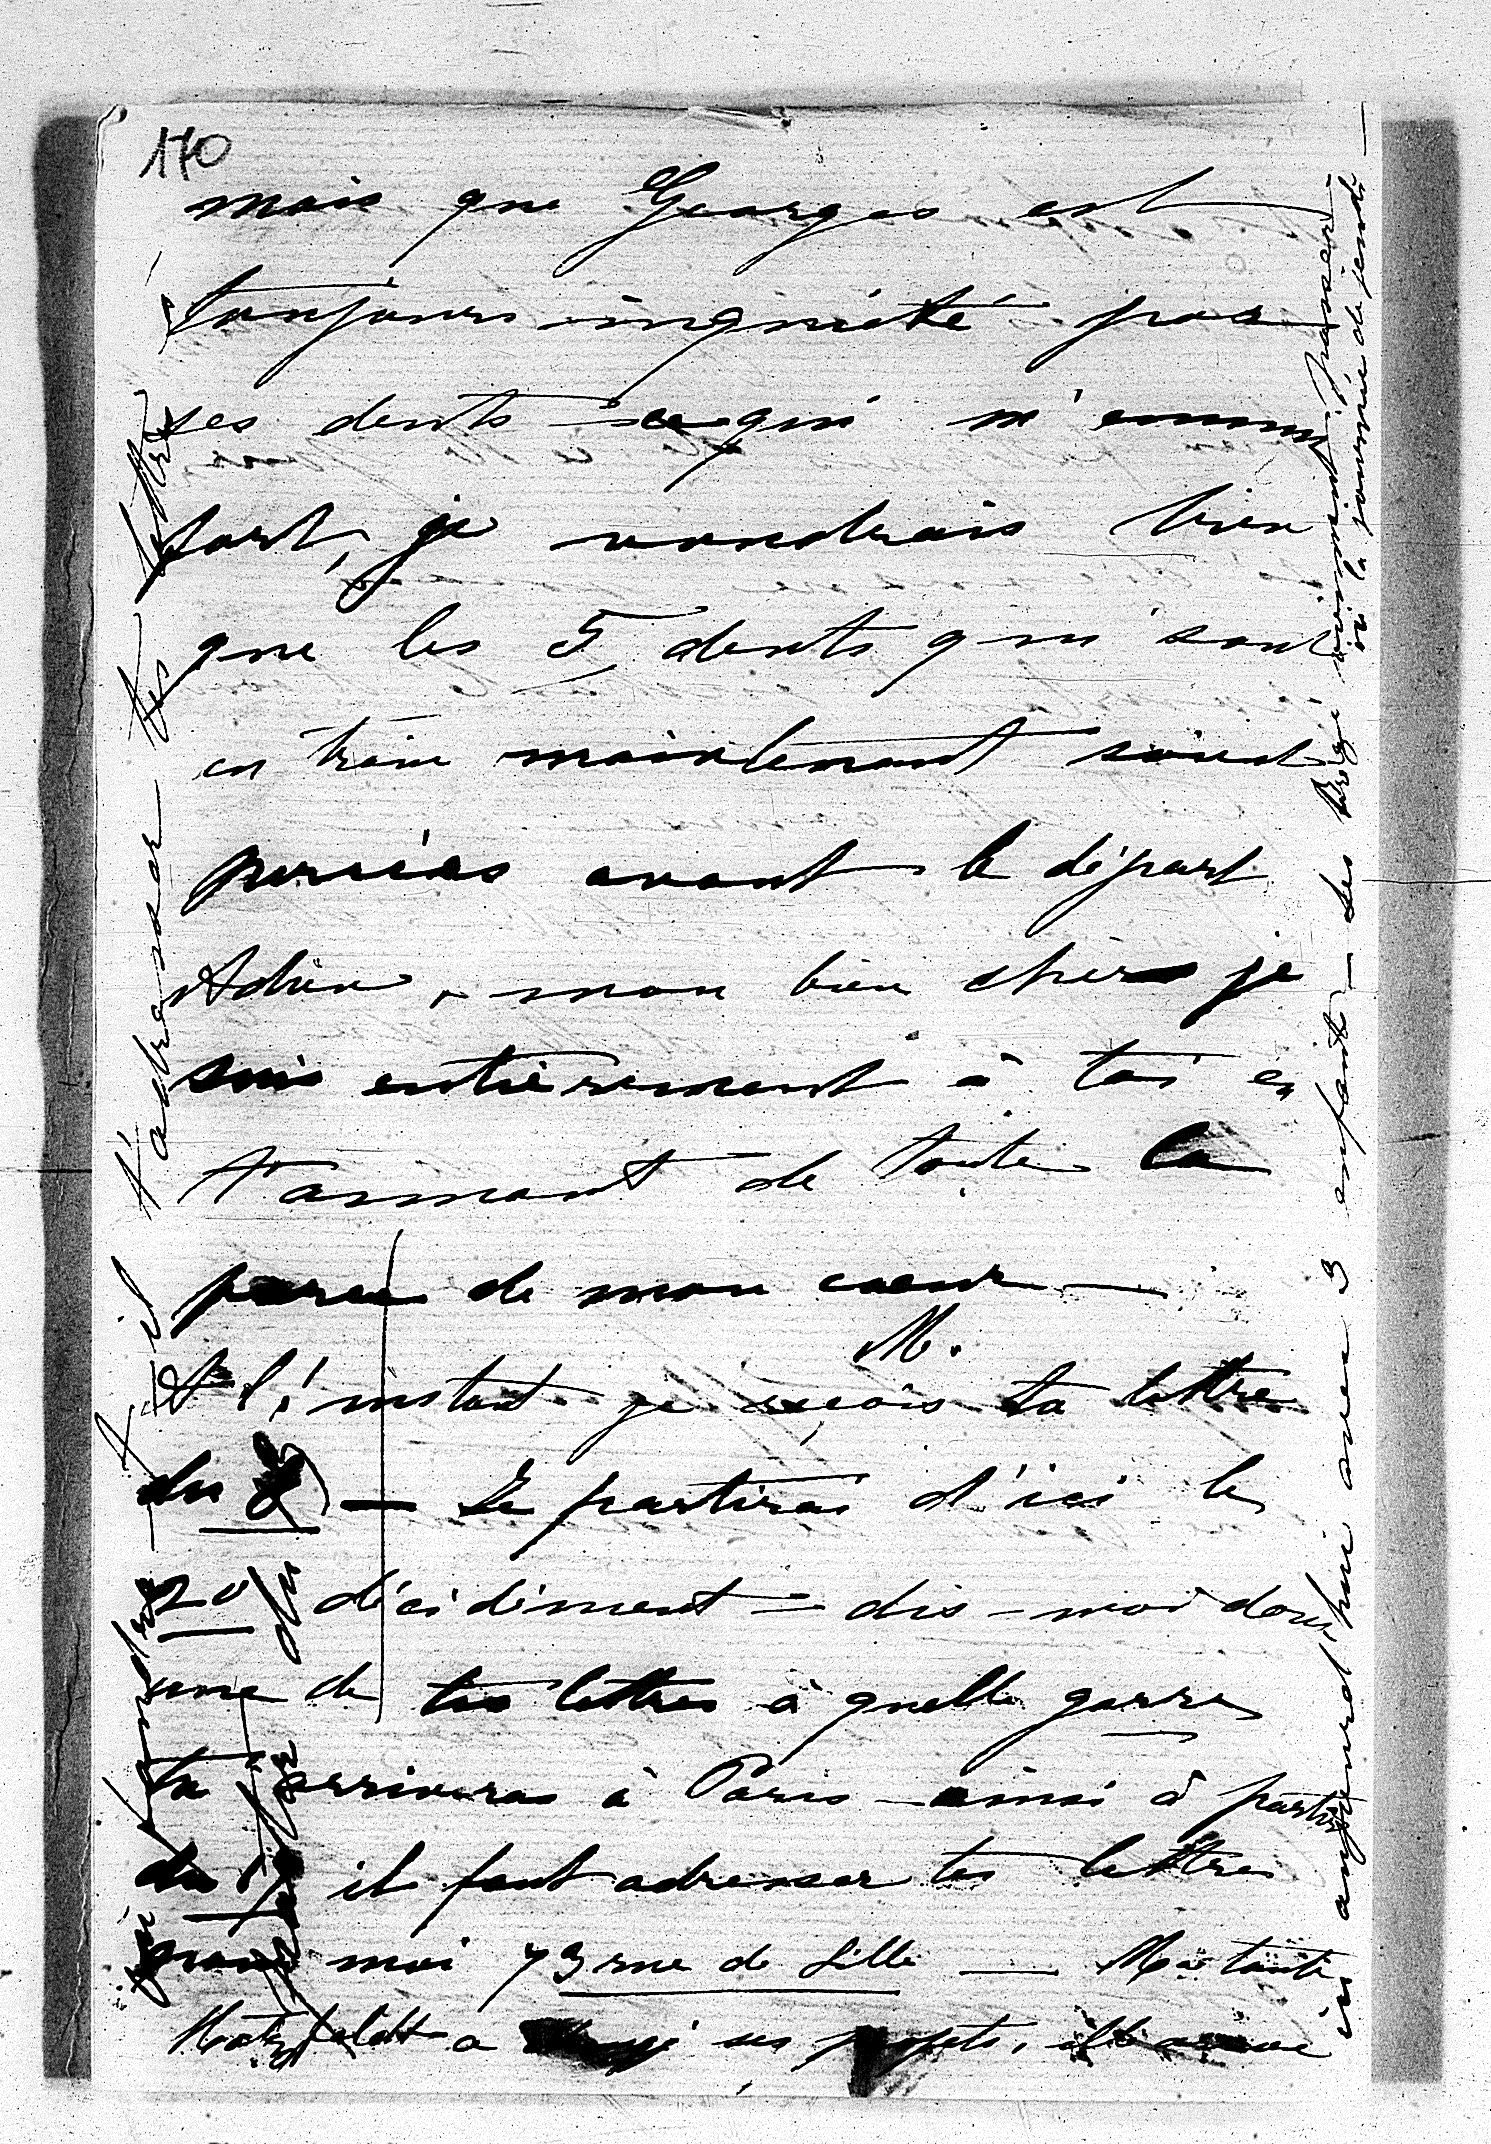 170
mais que Georges est
toujours inquiété par
ses dents ce qui m'ennuie
fort, je voudrais bien
que les 5 dents qui sont
en train maintenant soient
percées avant le départ
Adieu, mon bien cher je
suis entièrement à toi en
t'aimant de toute la
de mon cœur —
M.
A l'instant je reçois ta lettre
du — Je partirai d'ici le
20 décidément = dis-moi dans
une de tes lettres à quelle garre
tu arriveras à Paris — ainsi à partir
du il faut adresser tes lettres
pour moi 73 rue de Lille — Ma tante
Hatzfeldt a changé ses projets, elle arrive
ici aujourd'hui avec 3 enfants — les viennent passer
ici la journée de jeudi —
t'adresser tes lettres —